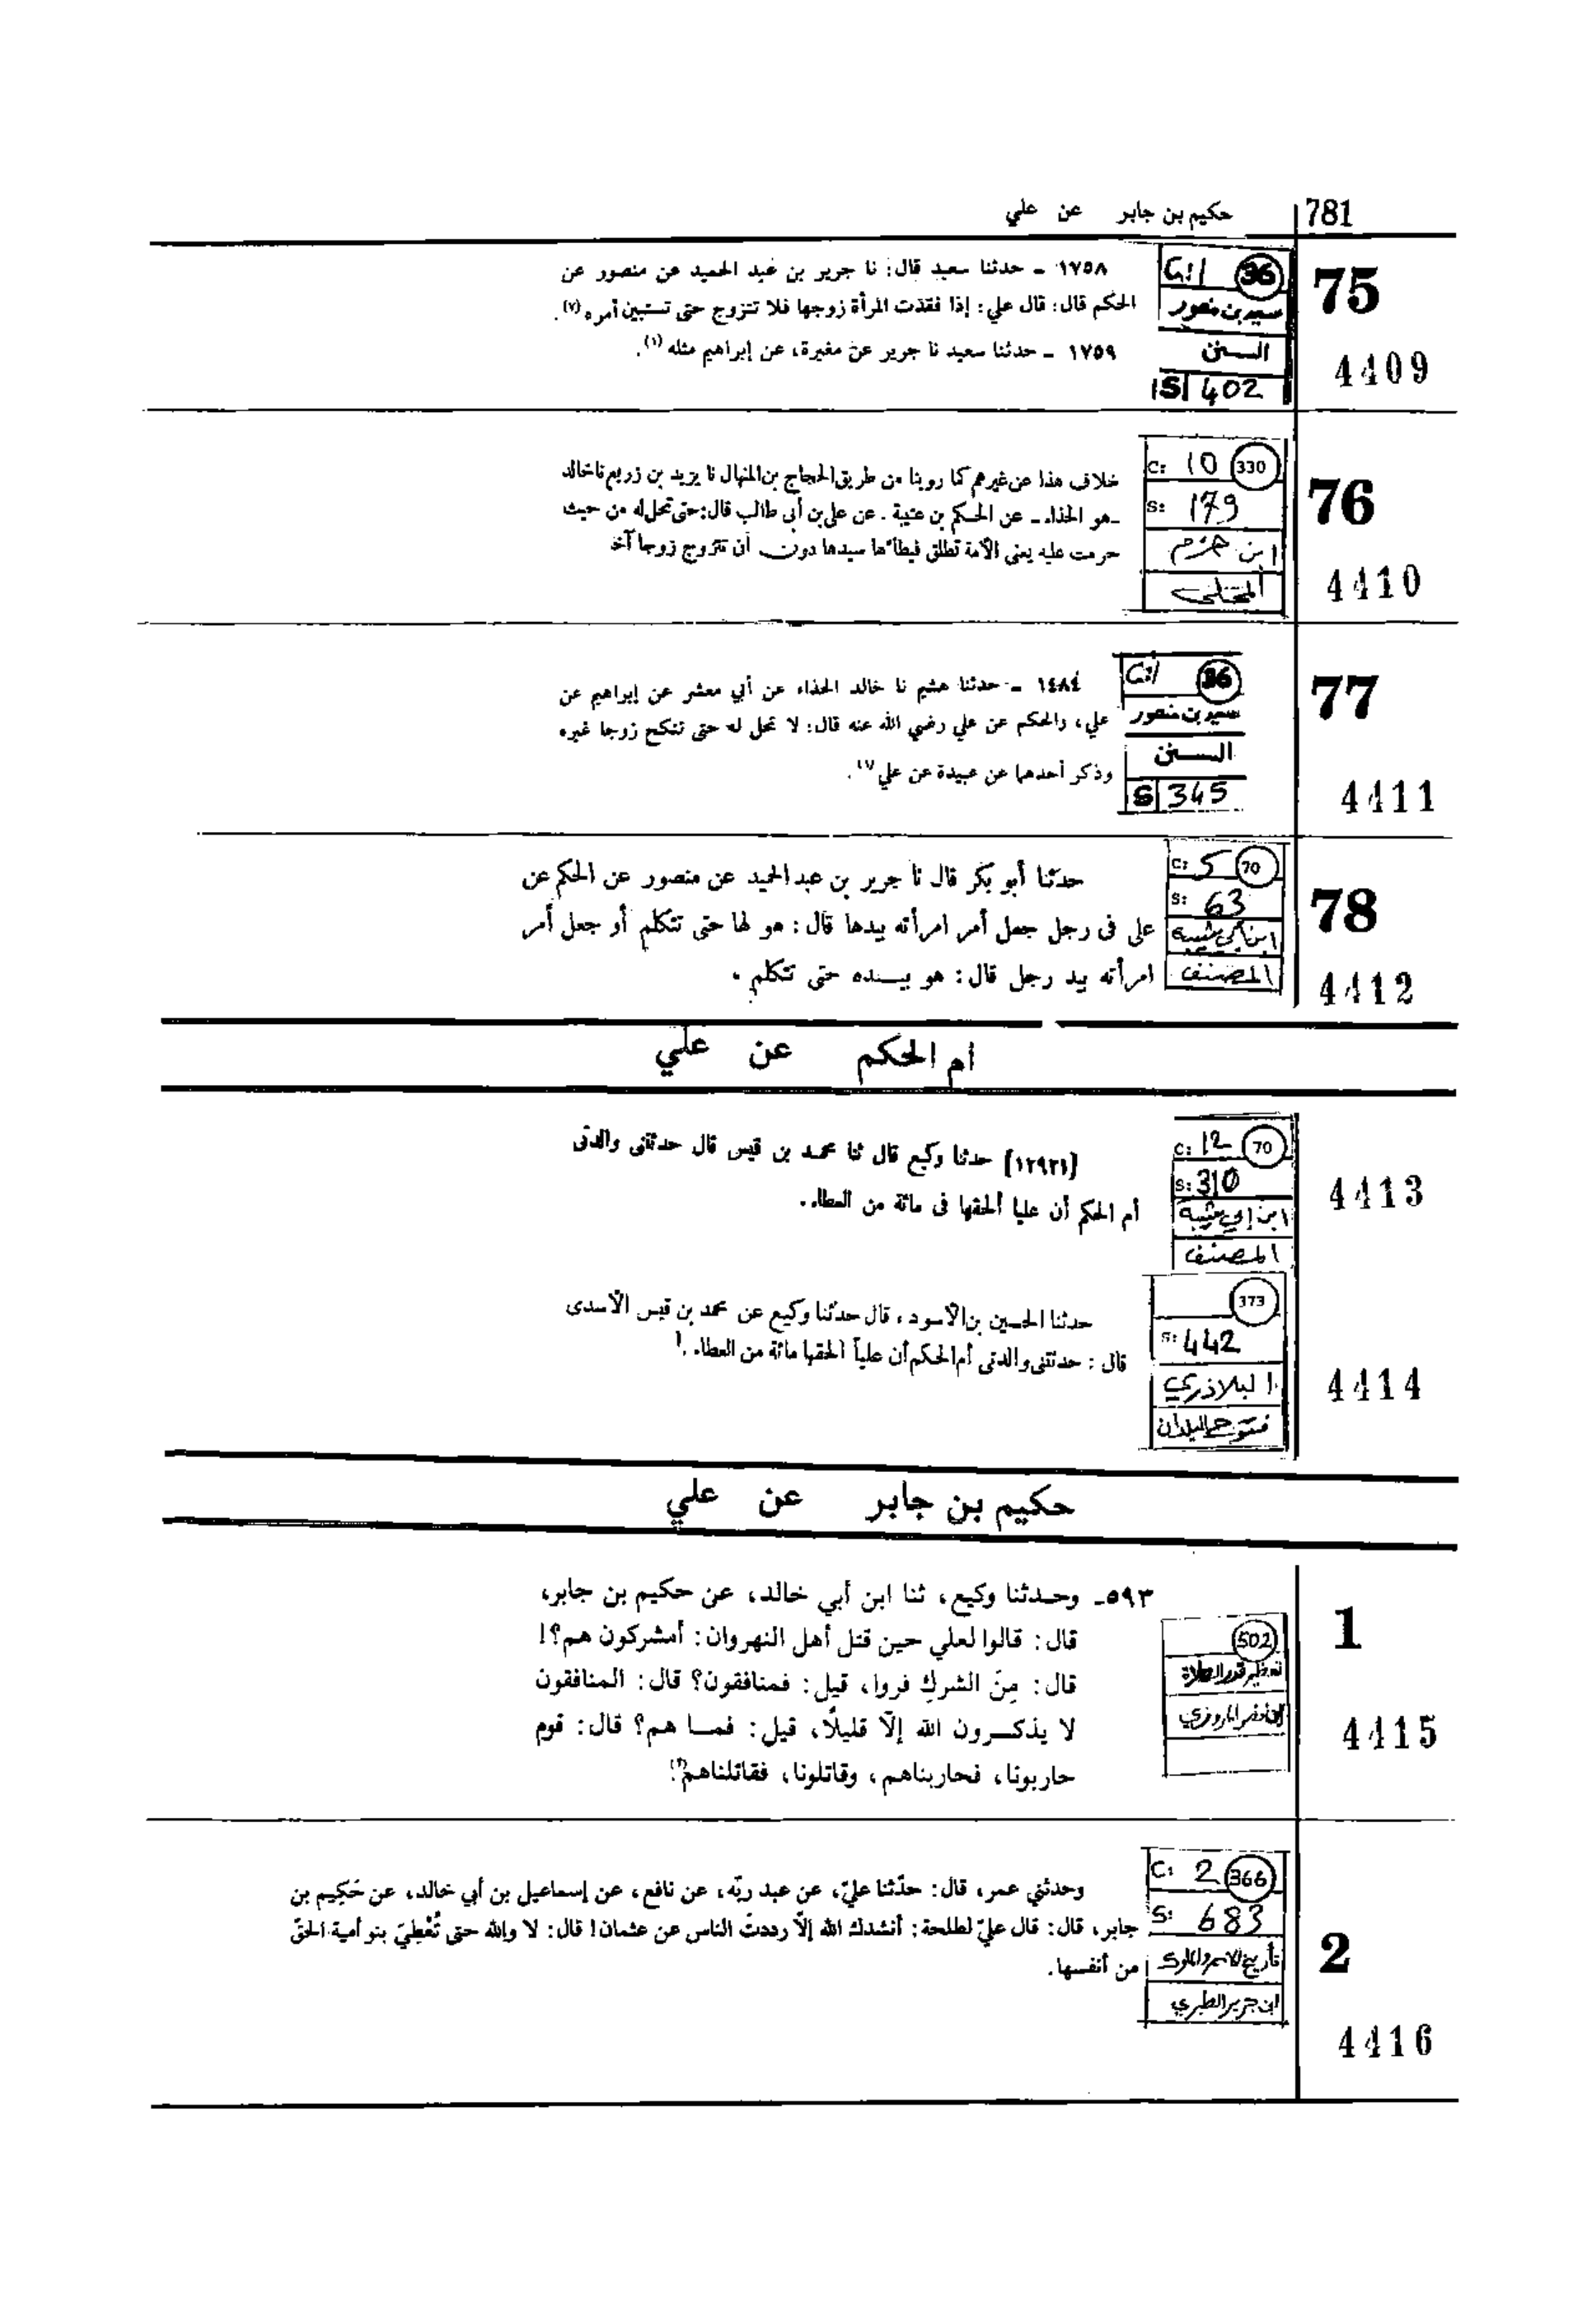 781 حكيم بن جابر عن علي
75
36
سعيد بن منصور
السنن
S 402
4409
١٧٥٨ - حدثنا سعيد قال: نا جرير بن عبد الحميد عن منصور عن
الحكم قال: قال علي: إذا فقدت المرأة زوجها فلا تتزوج حتى تستبين أمره (٧).
١٧٥٩ - حدثنا سعيد نا جرير عن مغيرة، عن إبراهيم مثله (١).
76
C: 10 330
S: 179
ابن حزم
المحلى
4410
خلاف هذا عن غيرهم كما روينا من طريق الحجاج بن المنهال نا يزيد بن زريع نا خالد
ـ هو الحذاء ـ عن الحكم بن عتيبة . عن علي بن أبي طالب قال: حتى تحل له من حيث
حرمت عليه يعنى الأمة تطلق فيطأها سيدها دون أن تتزوج زوجا آخ
77
36
سعيد بن منصور
السنن
S 345
4411
١٤٨٤ - حدثنا هشيم نا خالد الحذاء عن أبي معشر عن إبراهيم عن
علي، والحكم عن علي رضي الله عنه قال: لا تحل له حتى تنكح زوجا غيره
وذكر أحدهما عن عبيدة عن علي
78
C: 5 70
S: 63
ابن أبي شيبة
المصنف
4412
حدثنا أبو بكر قال نا جرير بن عبد الحميد عن منصور عن الحكم عن
على فى رجل جعل أمر امرأته بيدها قال : هو لها حتى تتكلم أو جعل أمر
امرأته بيد رجل قال : هو بيده حتى تتكلم .
ام الحكم عن علي
C: 12 70
S: 310
ابن ابي شيبة
المصنف
4413
[١٢٩٣١] حدثنا وكيع قال ثنا محمد بن قيس قال حدثتنى والدتى
أم الحكم أن عليا ألحقها فى مائة من العطاء.
373
S: 442
البلاذري
فتوح البلدان
4414
حدثنا الحسين بن الأسود ، قال حدثنا وكيع عن محمد بن قيس الأسدى
قال : حدثتنى والدتى أم الحكم أن علياً ألحقها مائة من العطاء .
حكيم بن جابر عن علي
1
502
تعظيم قدر الصلاة
ابن نصر المروزي
4415
٥٩٣ـ وحدثنا وكيع، ثنا ابن أبي خالد، عن حكيم بن جابر،
قال: قالوا لعلي حين قتل أهل النهروان: أمشركون هم؟!
قال: مِنَ الشركِ فروا، قيل: فمنافقون؟ قال: المنافقون
لا يذكرون الله إلّا قليلًا، قيل: فما هم؟ قال: قوم
حاربونا، فحاربناهم، وقاتلونا، فقاتلناهم
2
C: 2 366
S: 683
تأريخ الامم والملوك
ابن جرير الطبري
4416
وحدثني عمر، قال: حدّثنا عليّ، عن عبد ربّه، عن نافع، عن إسماعيل بن أبي خالد، عن حَكيم بن
جابر، قال: قال عليّ لطلحة: أنشدك الله إلاّ رددتَ الناس عن عثمان! قال: لا والله حتى تُعْطِيَ بنو أمية الحقّ
من أنفسها.